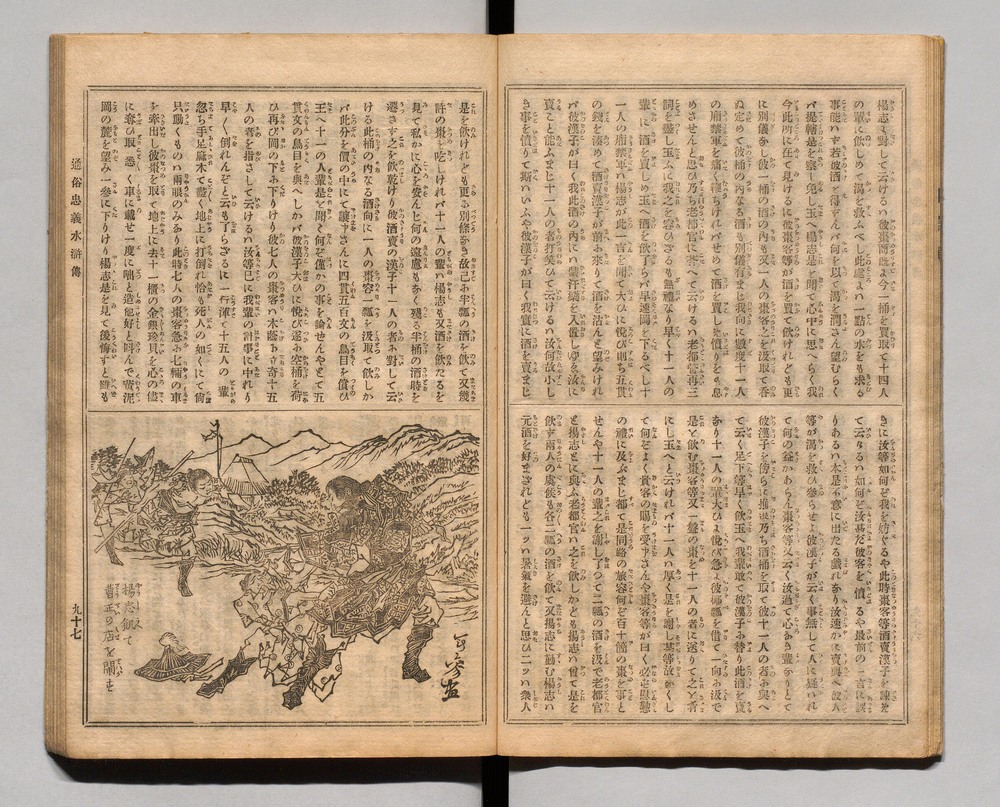 楊志に對して云けるハ彼棗商既に今一桶を買取て十四人
の輩に飲しめて渇を救ふべし此處よハ一點の水をも求る
事能ハず若彼酒を得ずんバ何を以て渇を潤さん望むらく
バ提轄是を察し免し玉へ楊志是を聞て心中に思へらく我
今此所に在て見けるに彼棗客等が酒を買て飲けれども更
に別儀なし彼一桶の酒の内をも又一人の棗客之を汲取て呑
ぬ定めて彼桶の内なる酒も別儀有まじ我向に數度十一人
の廂禁軍を痛く打ちけれバせめて酒を買しめ憤りをも息
めさせんと思ひ乃ち老都官に答へて云けるハ老都管再三
詞を盡し玉ふに我之を容ひざるも無禮なり早く十一人の
輩に酒を飲しめ玉へ酒を飲了らバ早速岡を下るべし十
一人の廂禁軍ハ楊志が此一言を聞て大ひに悅び則ち五貫
の錢を湊めて酒賣漢子が前に來りて酒を沽んと望みけれ
バ彼漢子が曰く我此酒の内にハ蒙汗藥を入置しゆゑ汝に
賣こと能ふまじ十一人の者打笑ひて云けるハ汝何故小し
き事を憤りて斯いふや彼漢子が曰く我實に酒を賣まじ
きに汝等如何ぞ我を妨ぐるや此時棗客等酒賣漢子を諫め
て云なるハ如何ぞ汝甚だ彼客を憤るや最前の一言に誤
りあるハ本是不意に出たる戲れなり汝速かに賣與へ故人
等が渇を救ひ參らせよ彼漢子が云く事無して人に疑れ
て何の益かあらん棗客等又云く汝過て心ある輩なりとて
彼漢子を傍らに推退乃ち酒桶を取て彼十一人の者に與へ
て云く足下等早く飲玉へ我輩敢て彼漢子に替り此酒を賣
なり十一人の輩大ひに悅び急ぎ彼椰瓢を借て一向に汲で
是を飲む棗客等又一盤の棗を十一人の者に送りて之を肴
にし玉へと云けれバ十一人ハ厚く是を謝し某等故無くし
て何ぞよく貴客の賜を受やさんや棗客等が曰く必ず慰懃
の禮に及ぶまじ都て是同路の旅客何ぞ百十箇の棗を事と
せんや十一人の輩之を謝し了つて二瓢の酒を汲で老都官
と楊志とに與ふ老都官ハ之を飲しかども楊志ハ曾て是を
飲ず兩人の虞候も各二瓢の酒を飲て楊志に勸む楊志ハ
元酒を好まざれども一ッハ暑氣を避んと思ひ二ッハ衆人
是を飲けれども更に別條なき故已に半瓢の酒を飲て又幾
許の棗を吃しけれバ十一人の輩ハ楊志も又酒を飲たるを
見て私かに心を安んじ何の遠慮もなく殘る半桶の酒時を
遷さず之を飲乾けり彼酒賣の漢子十一人の者に對して云
ける此桶の内なる酒向に一人の棗客一瓢を汲取て飲しか
バ此分を價の中にて讓りやさんに四貫五百文の鳥目を償ひ
王へ十一の人輩是を聞て何ぞ僅かの事を論せんやとて五
貫文の鳥目を與へしかバ彼漢子大ひに悅び遂に空桶を荷
ひ再び岡の下に下り行けり彼七人の棗客ハ木蔭に立寄十五
人の者を指さして云けるハ汝等已に我輩の計事に中れり
早く倒れんぞと云も了らざるに一行渾て十五人の輩
忽ち手足麻木て盡く地上に打倒れ恰も死人の如くにて尚
只動くものハ兩眼のみなり此時七人の棗客急ぎ七輛の車
を牽出し彼棗を取て地上に去十一擔の金銀珍貝を心の儘
に奪ひ取悉く車に載せ一度に咄と造化好と呼んで黃泥
岡の麓を望み一參に下りけり楊志是を見て後悔すと雖も
通俗忠義水滸傳
楊志鬪て
曹正の店を鬧す
九十七